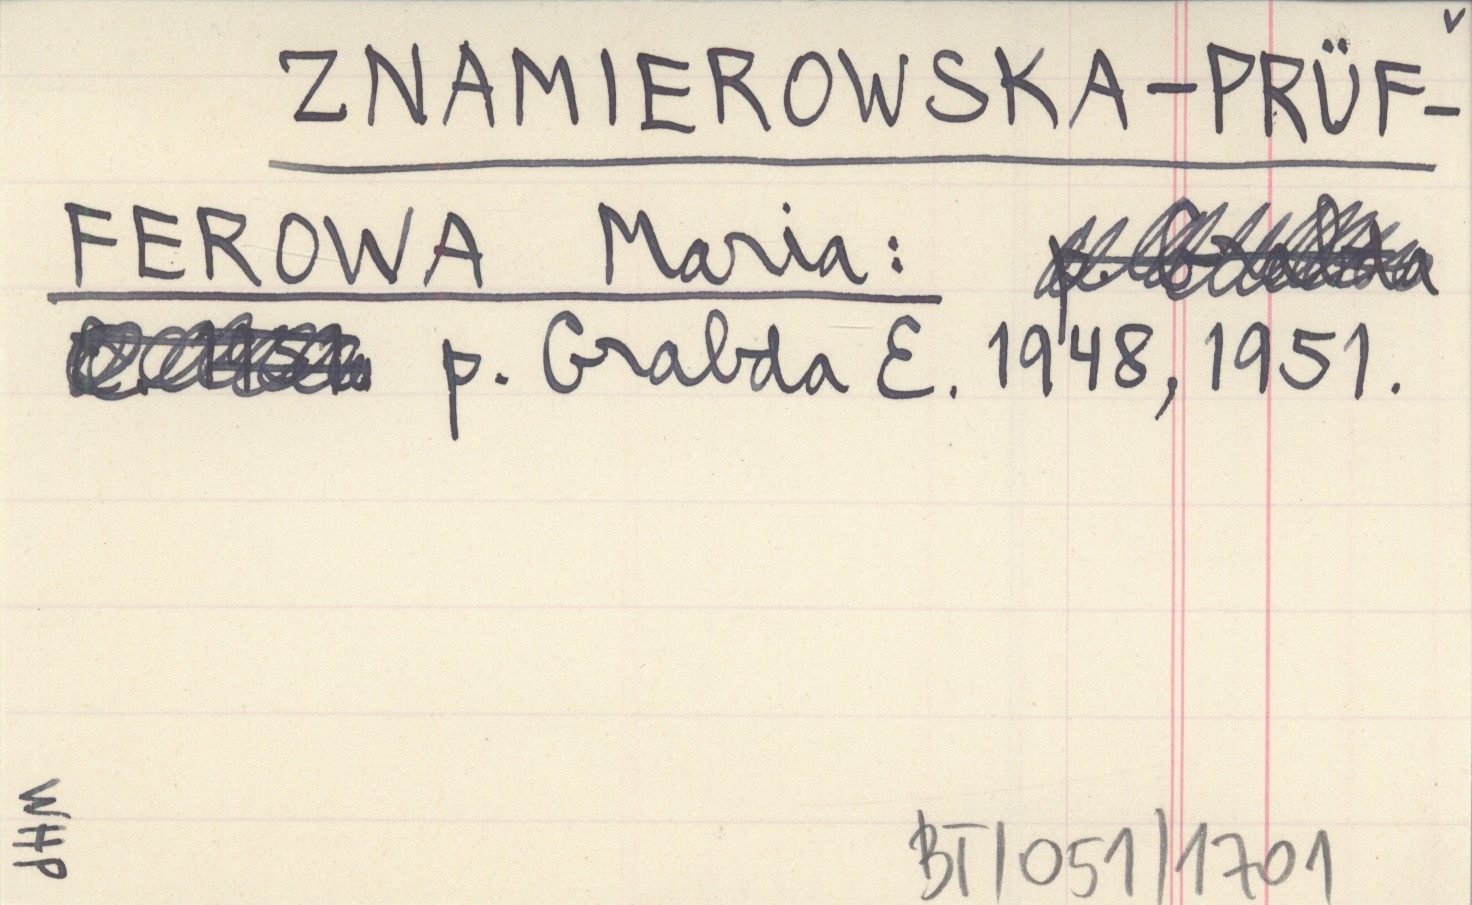 v
ZNAMIEROWSKA-PRÜF-
FEROWA Maria: p. Grabda
E. 1951. p. Grabda E. 1948, 1951.
WHP
BT/051/1701